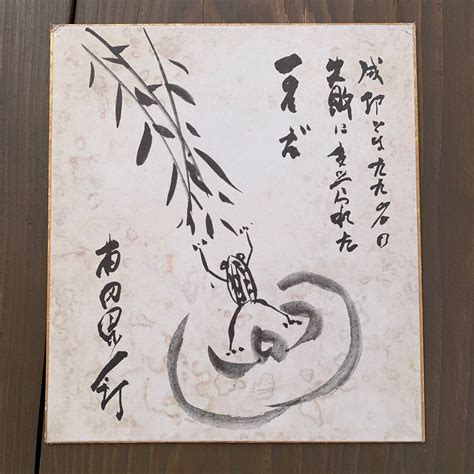 成功とは九九%の
失敗に支えられた
一%だ
本田宗一郎